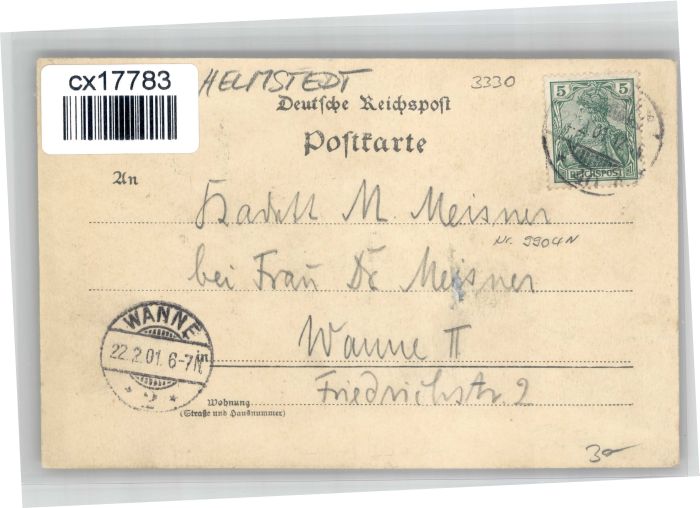 cx17783
HELMSTEDT
3330
Deutsche Reichspost
Postkarte
5 5
REICHSPOST
An
Kadett M. Meisner
Nr. 9904N
bei Frau Dr Meisner
WANNE
22.2.01. 6-7N.
2
Wanne II
in
Friedrichstr 2
Wohnung
(Straße und Hausnummer)